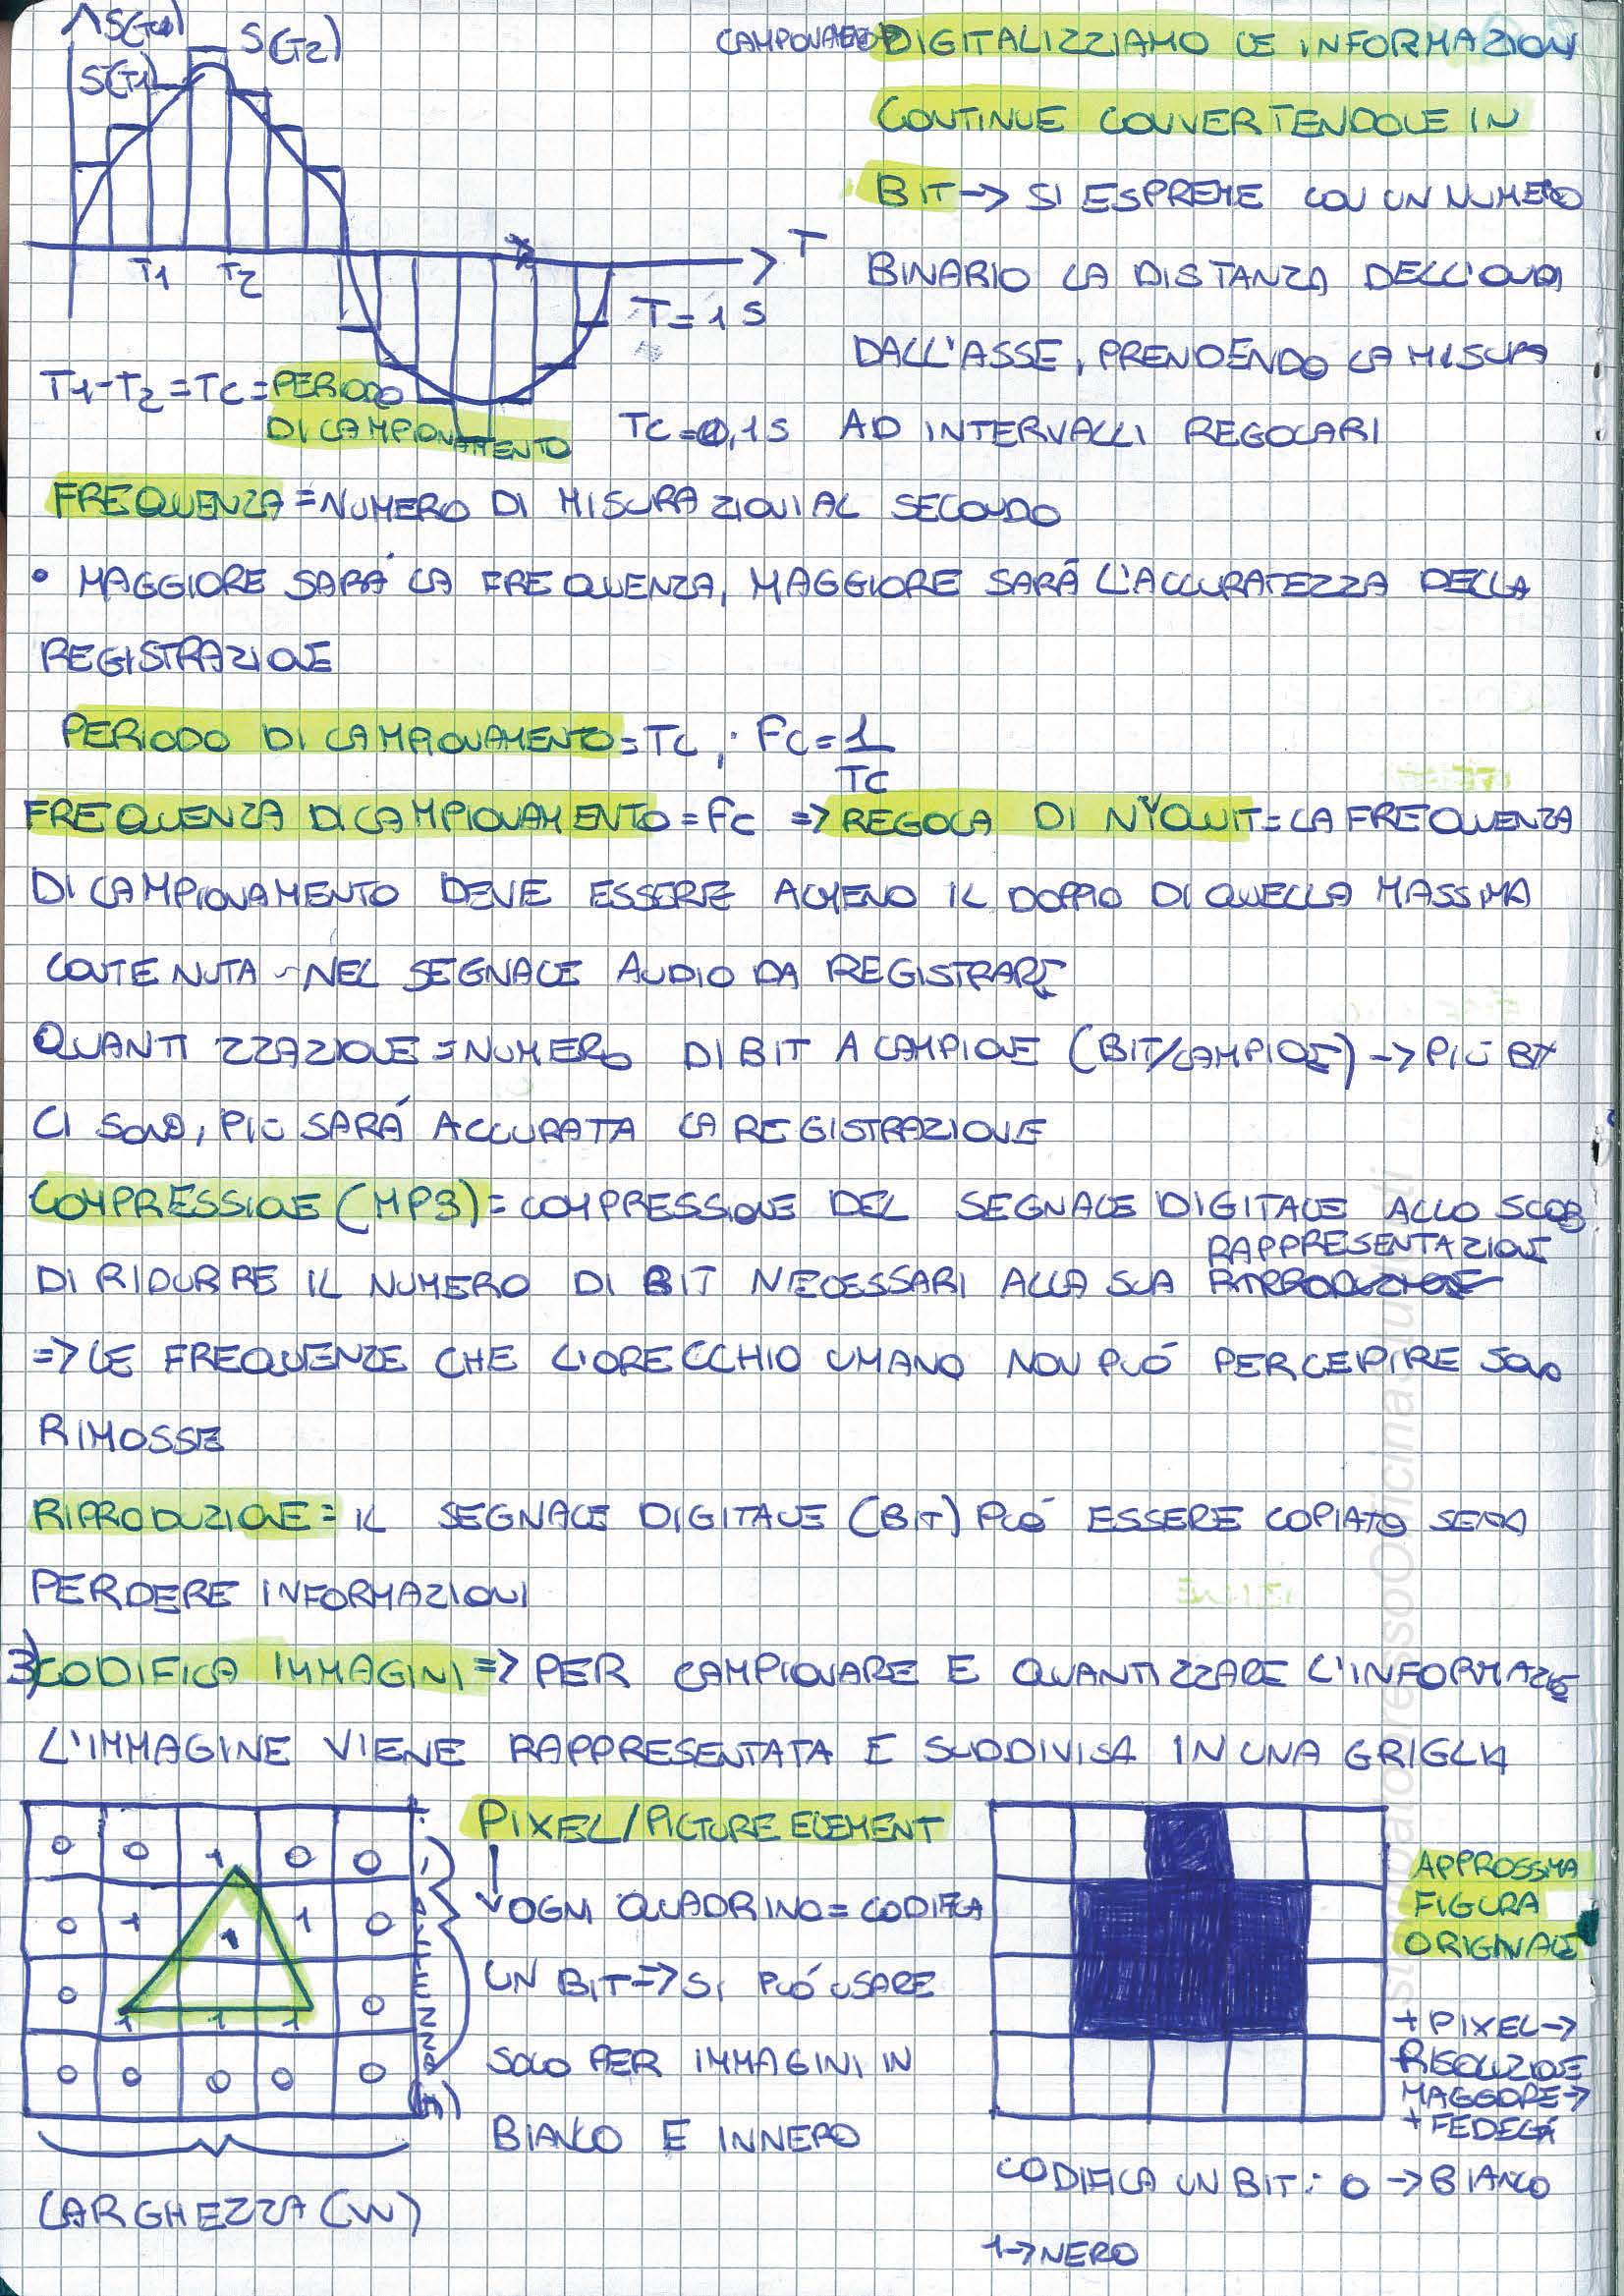 S(T0)
S(T1)
S(T2)
T1
T2
T
T = 1 S
T1-T2 = TC = PERIODO
DI CAMPIONAMENTO
TC = 0,1 S
DIGITALIZZIAMO LE INFORMAZIONI
CONTINUE CONVERTENDOLE IN
BIT -> SI ESPRIME CON UN NUMERO
BINARIO LA DISTANZA DELL'ONDA
DALL'ASSE, PRENDENDO LA MISURA
AD INTERVALLI REGOLARI
FREQUENZA = NUMERO DI MISURAZIONI AL SECONDO
• MAGGIORE SARÁ LA FREQUENZA, MAGGIORE SARÁ L'ACCURATEZZA DELLA
REGISTRAZIONE
PERIODO DI CAMPIONAMENTO = TC ; FC = 1
TC
FREQUENZA DI CAMPIONAMENTO = FC => REGOLA DI NYQUIT = LA FREQUENZA
DI CAMPIONAMENTO DEVE ESSERE ALMENO IL DOPPIO DI QUELLA MASSIMA
CONTENUTA NEL SEGNALE AUDIO DA REGISTRARE
QUANTIZZAZIONE = NUMERO DI BIT A CAMPIONE (BIT/CAMPIONE) -> PIÙ BIT
CI SONO, PIÙ SARÁ ACCURATA LA REGISTRAZIONE
COMPRESSIONE (MP3) = COMPRESSIONE DEL SEGNALE DIGITALE ALLO SCOPO
RAPPRESENTAZIONE
DI RIDURRE IL NUMERO DI BIT NECESSARI ALLA SUA RIPRODUZIONE
=> LE FREQUENZE CHE L'ORECCHIO UMANO NON PUÓ PERCEPIRE SONO
RIMOSSE
RIPRODUZIONE = IL SEGNALE DIGITALE (BIT) PUÓ ESSERE COPIATO SENZA
PERDERE INFORMAZIONI
3) CODIFICA IMMAGINI => PER CAMPIONARE E QUANTIZZARE L'INFORMAZIONE
L'IMMAGINE VIENE RAPPRESENTATA E SUDDIVISA IN UNA GRIGLIA
0 0 1 0 0
0 1 1 1 0
0 1 1 1 0
0 0 0 0 0
LARGHEZZA (W)
PIXEL/PICTURE ELEMENT
OGNI QUADRINO = CODIFICA
UN BIT => SI PUÓ USARE
SOLO PER IMMAGINI IN
BIANCO E INNERO
APPROSSIMA
FIGURA
ORIGINALE
+ PIXEL ->
RISOLUZIONE
MAGGIORE ->
+ FEDELTÀ
CODIFICA UN BIT: 0 -> BIANCO
1 -> NERO
stampato presso Officina Studenti